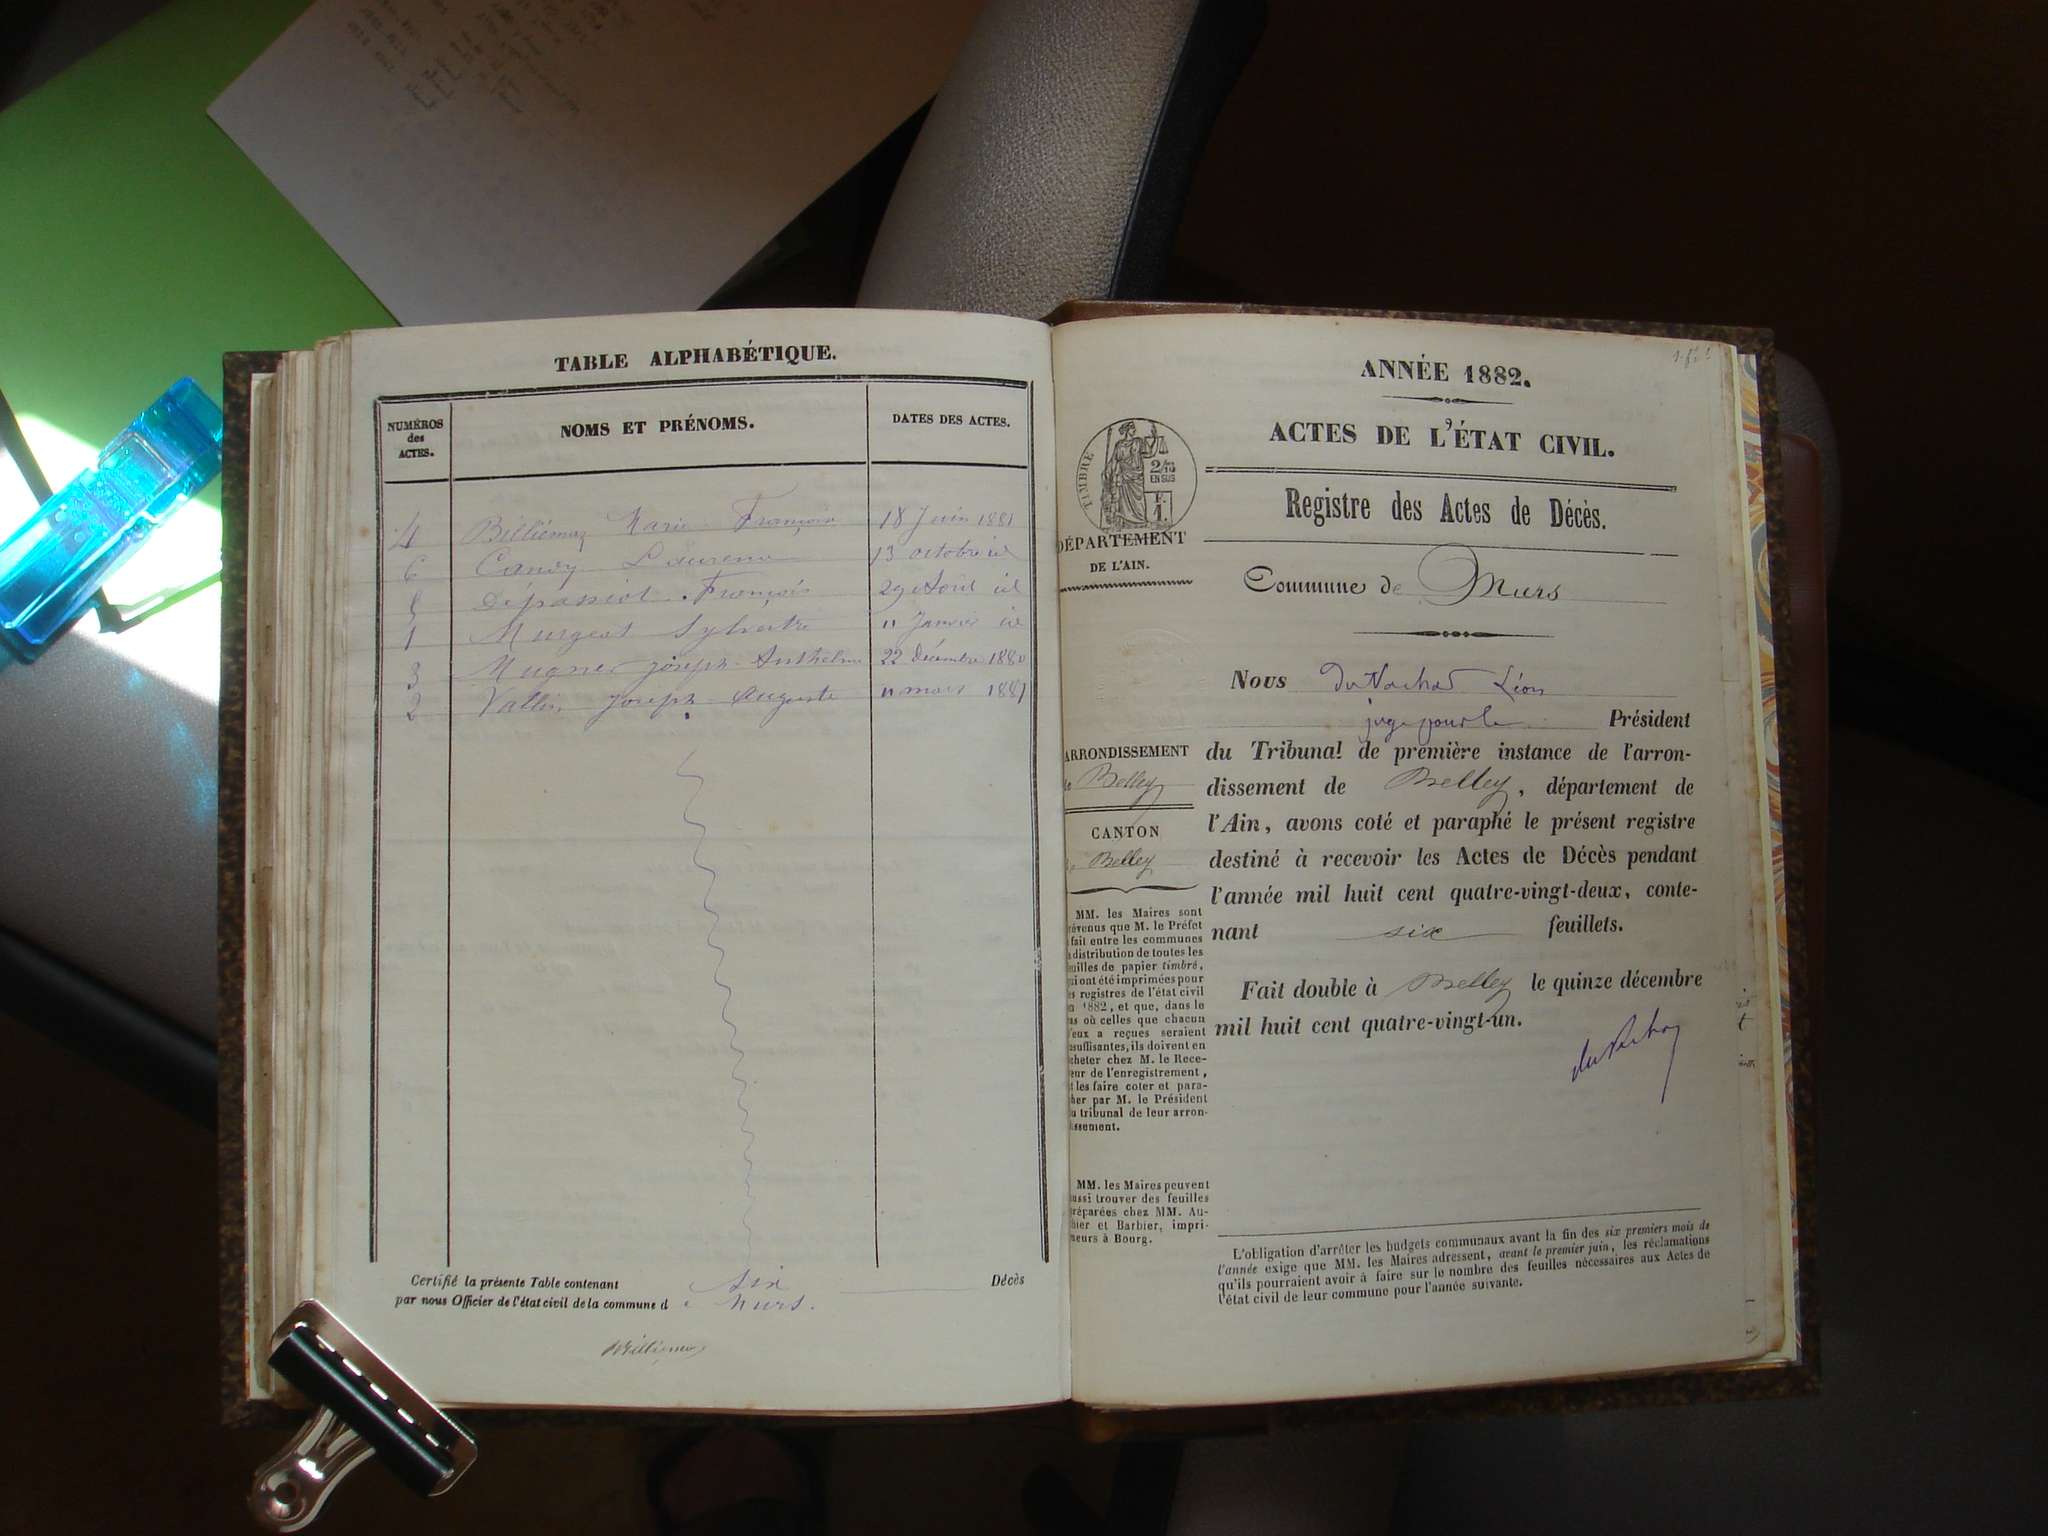 TABLE ALPHABÉTIQUE.
NUMÉROS
des
ACTES.
NOMS ET PRÉNOMS.
DATES DES ACTES.
4 Billiémaz Marie François 18 Juin 1881
6 Candy Laurence 13 octobre id
5 Dépassiot François 29 Août id
1 Murgeat Sylvestre 11 Janvier id
3 Mugner Joseph Anthelme 22 Décembre 1880
2 Vallin Joseph Auguste 11 mars 1881
Certifié la présente Table contenant six Décès
par nous Officier de l'état civil de la commune de Murs.
Billiémaz
ANNÉE 1882.
ACTES DE L'ÉTAT CIVIL.
TIMBRE
2/10
EN SUS
F.
1.
Registre des Actes de Décès.
DÉPARTEMENT
DE L'AIN.
Commune de Murs
Nous Léon
juge pour le Président
du Tribunal de première instance de l'arron-
dissement de Belley, département de
l'Ain, avons coté et paraphé le présent registre
destiné à recevoir les Actes de Décès pendant
l'année mil huit cent quatre-vingt-deux, conte-
nant six feuillets.
Fait double à Belley le quinze décembre
mil huit cent quatre-vingt-un.
ARRONDISSEMENT
de Belley
CANTON
de Belley
MM. les Maires sont
révenus que M. le Préfet
fait entre les communes
a distribution de toutes les
euilles de papier timbré,
qui ont été imprimées pour
es registres de l'état civil
en 1882, et que, dans le
as où celles que chacun
d'eux a reçues seraient
nsuffisantes, ils doivent en
cheter chez M. le Rece-
eur de l'enregistrement,
t les faire coter et para-
her par M. le Président
u tribunal de leur arron-
issement.
MM. les Maires peuvent
aussi trouver des feuilles
réparées chez MM. Au-
hier et Barbier, impri-
meurs à Bourg.
L'obligation d'arrêter les budgets communaux avant la fin des six premiers mois de
l'année exige que MM. les Maires adressent, avant le premier juin, les réclamations
qu'ils pourraient avoir à faire sur le nombre des feuilles nécessaires aux Actes de
l'état civil de leur commune pour l'année suivante.